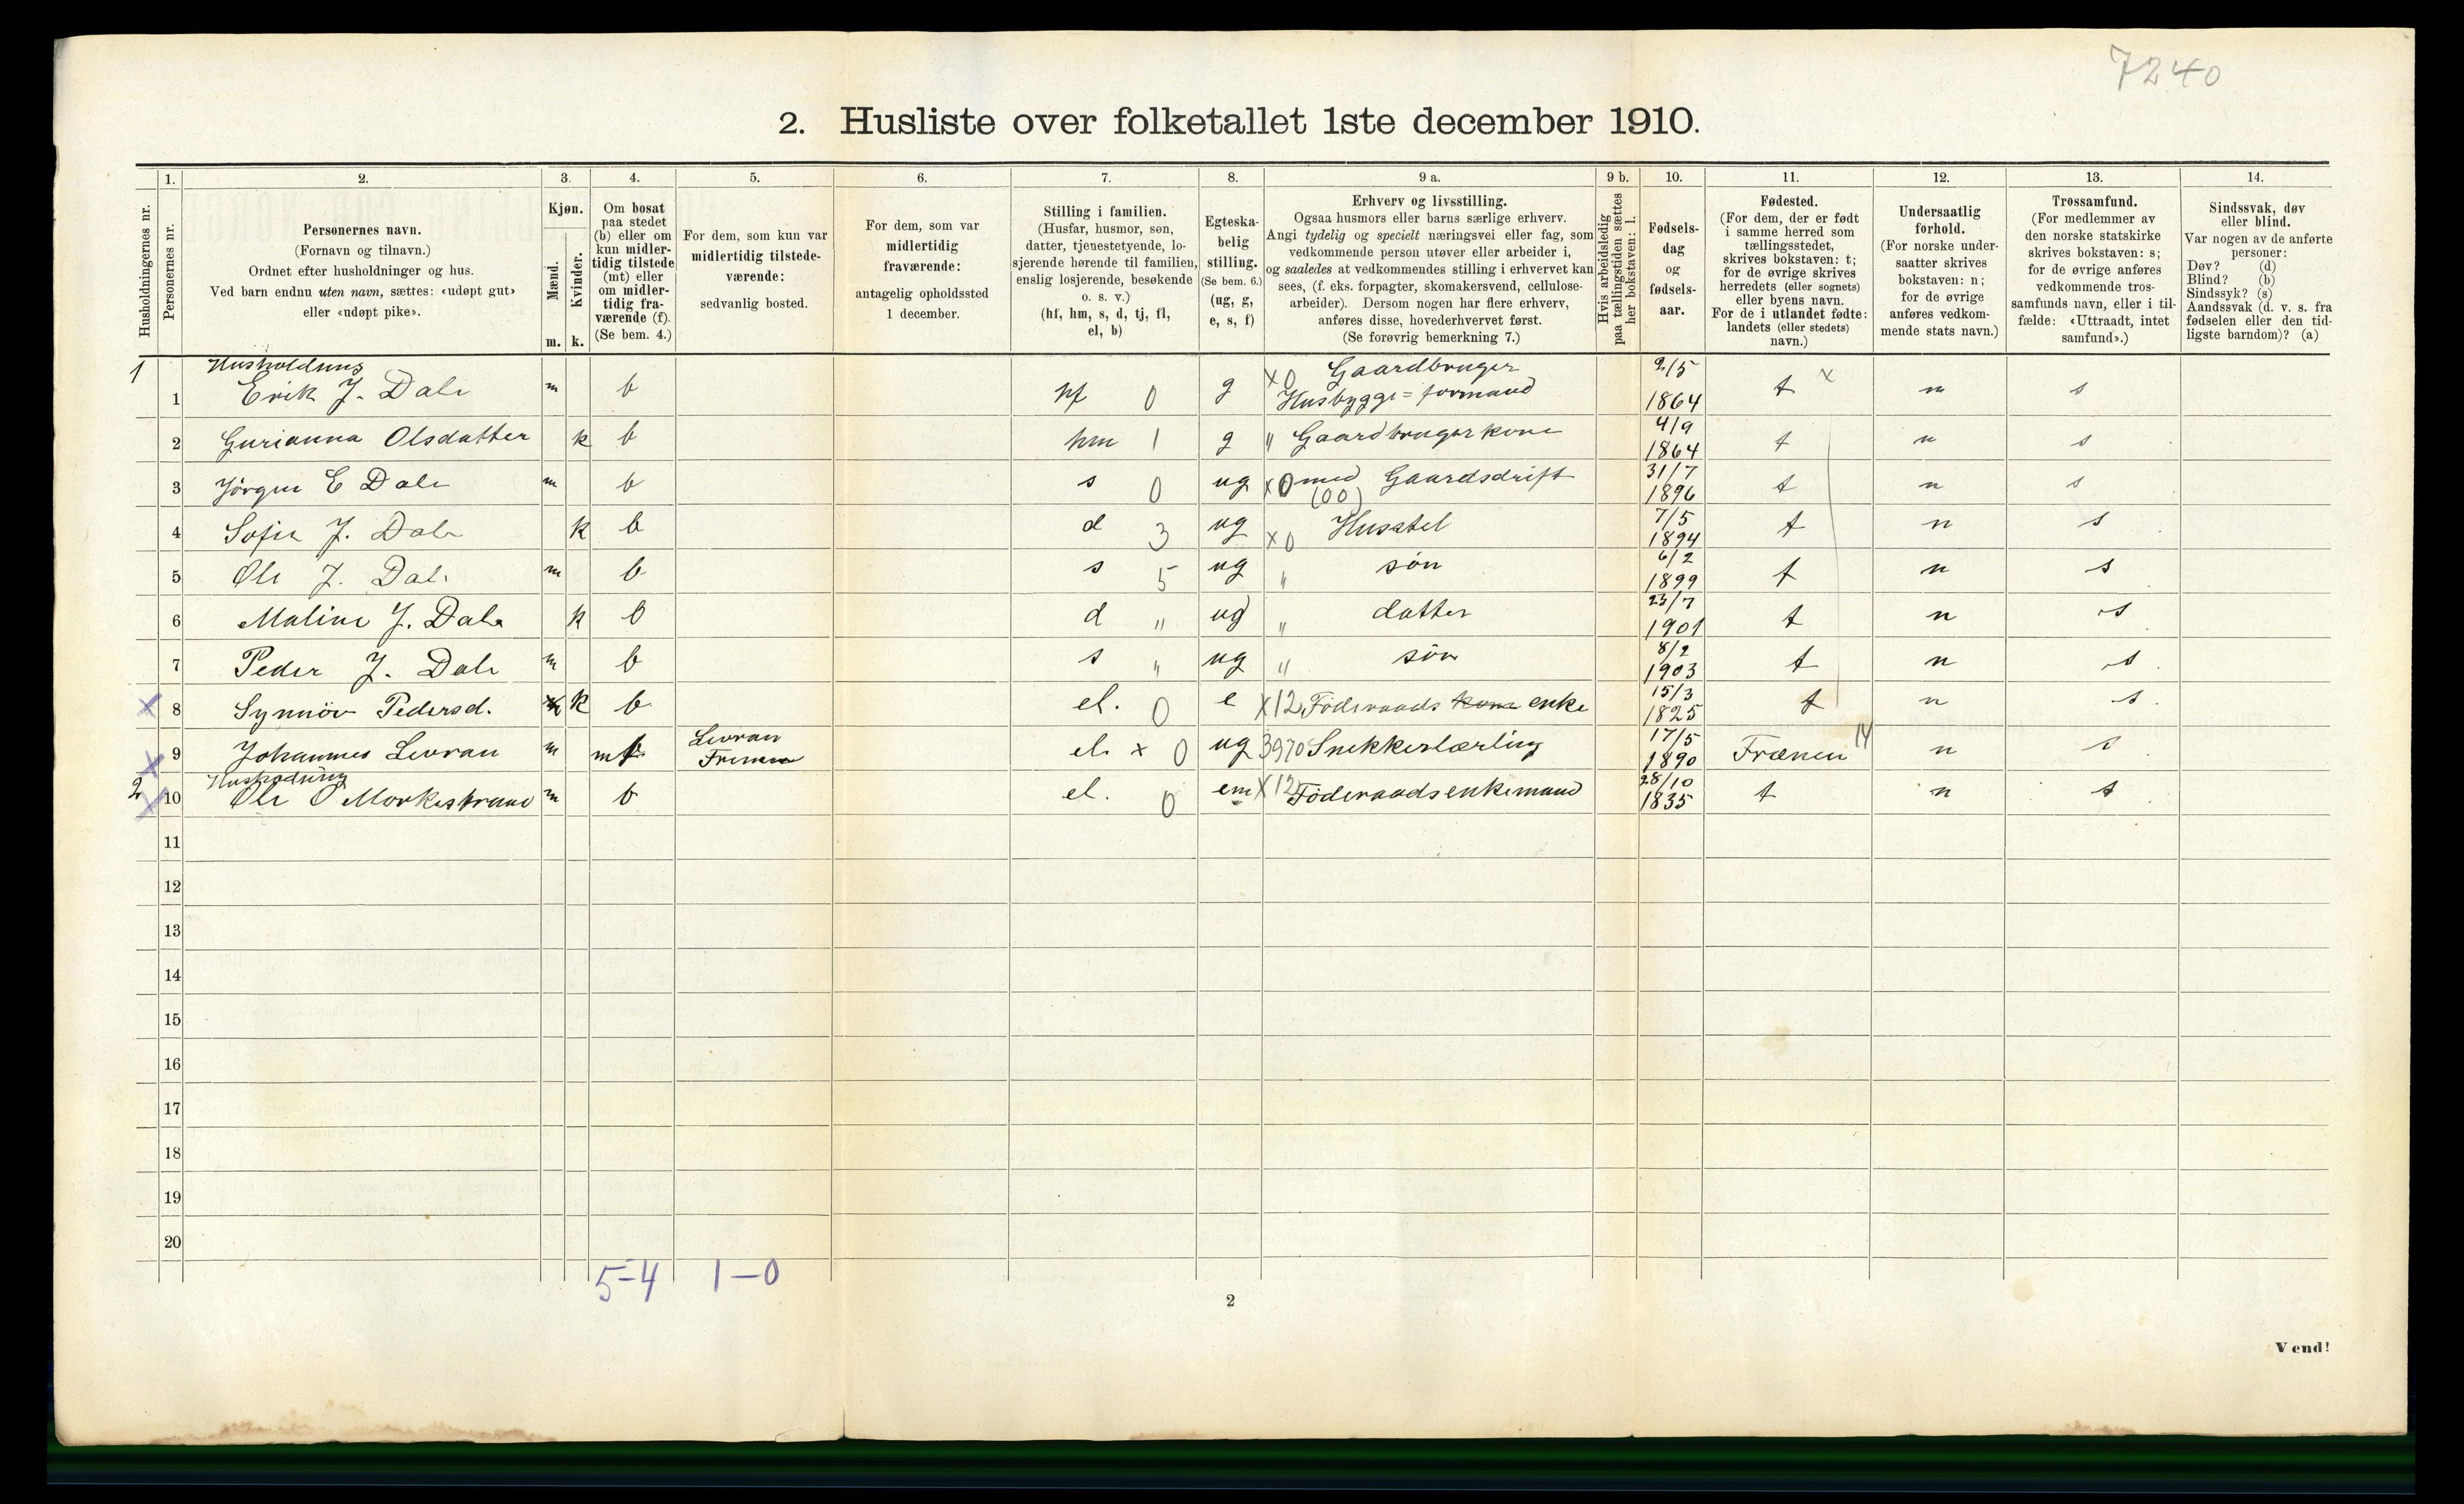 7240
2. Husliste over folketallet 1ste december 1910.
Husholdningernes nr.
1.
Personernes nr.
2.
Personernes navn.
(Fornavn og tilnavn.)
Ordnet efter husholdninger og hus.
Ved barn endnu uten navn, sættes: «udøpt gut»
eller «udøpt pike».
3.
Kjøn.
Mænd.
Kvinder.
m. k.
4.
Om bosat
paa stedet
(b) eller om
kun midler-
tidig tilstede
(mt) eller
om midler-
tidig fra-
værende (f).
(Se bem. 4.)
5.
For dem, som kun var
midlertidig tilstede-
værende:
sedvanlig bosted.
6.
For dem, som var
midlertidig
fraværende:
antagelig opholdssted
1 december.
7.
Stilling i familien.
(Husfar, husmor, søn,
datter, tjenestetyende, lo-
sjerende hørende til familien,
enslig losjerende, besøkende
o. s. v.)
(hf, hm, s, d, tj, fl,
el, b)
8.
Egteska-
belig
stilling.
(Se bem. 6.)
(ug, g,
e, s, f)
9 a.
Erhverv og livsstilling.
Ogsaa husmors eller barns særlige erhverv.
Angi tydelig og specielt næringsvei eller fag, som
vedkommende person utøver eller arbeider i,
og saaledes at vedkommendes stilling i erhvervet kan
sees, (f. eks. forpagter, skomakersvend, cellulose-
arbeider). Dersom nogen har flere erhverv,
anføres disse, hovederhvervet først.
(Se forøvrig bemerkning 7.)
9 b.
Hvis arbeidsledig
paa tællingstiden sættes
her bokstaven: l.
10.
Fødsels-
dag
og
fødsels-
aar.
11.
Fødested.
(For dem, der er født
i samme herred som
tællingsstedet,
skrives bokstaven: t;
for de øvrige skrives
herredets (eller sognets)
eller byens navn.
For de i utlandet fødte:
landets (eller stedets)
navn.)
12.
Undersaatlig
forhold.
(For norske under-
saatter skrives
bokstaven: n;
for de øvrige
anføres vedkom-
mende stats navn.)
13.
Trossamfund.
(For medlemmer av
den norske statskirke
skrives bokstaven: s;
for de øvrige anføres
vedkommende tros-
samfunds navn, eller i til-
fælde: «Uttraadt, intet
samfund».)
14.
Sindssvak, døv
eller blind.
Var nogen av de anførte
personer:
Døv? (d)
Blind? (b)
Sindssyk? (s)
Aandssvak (d. v. s. fra
fødselen eller den tid-
ligste barndom)? (a)
1 Husholdning
Gaardbruger 2/5
1 Erik J. Dale m b hf 0 g x0 Husbygge=formand 1864 t x n s
2 Gurianna Olsdatter k b hm 1 g " Gaardbruger kone 4/9 1864 t n s
3 Jörgen E Dale m b s 0 ug x0 med Gaardsdrift (00) 31/7 1896 t n s
4 Sofie J. Dale k b d 3 ug x0 Husstel 7/5 1894 t n s
5 Ole J. Dale m b s 5 ug " søn 6/2 1899 t n s
6 Maline J. Dale k b d " ug " datter 23/7 1901 t n s
7 Peder J. Dale m b s " ug " søn 8/2 1903 t n s
x 8 Synnöv Pedersd. k b el. 0 e x12 Föderaads kone enke 15/3 1825 t n s
x 9 Johannes Levran m mt Levran el. x 0 ug 3970 Snekkerlærling 17/5 1890 Frænen 14 n s
2 Husholdning
x 10 Ole O Morkestrand m b el. 0 em x12 Föderaadsenkemand 28/10 1835 t n s
11
12
13
14
15
16
17
18
19
20
5-4 1-0
2
Vend!